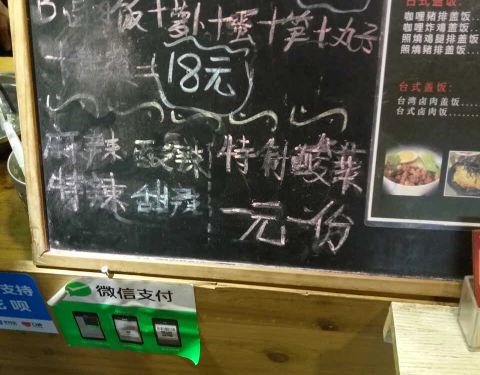 饭+萝卜+蛋+笋+丸子
18元
麻辣 酸辣 特制酸菜
特辣 甜辣 一元一份
台式盖饭:
咖哩豬排盖饭...
咖哩炸鸡盖饭...
照燒鸡腿排盖饭
照燒豬排盖饭...
台式盖饭:
台湾卤肉盖饭....
台式卤肉饭.....
支持
微信支付